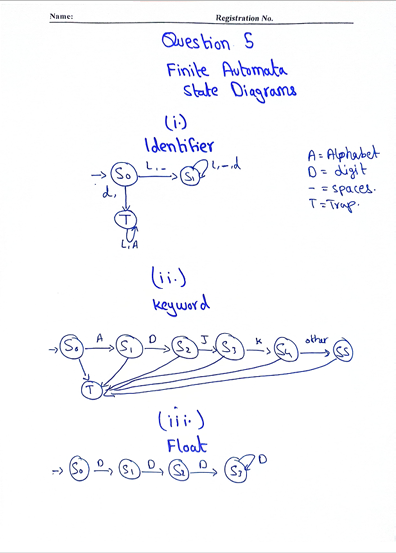 Name:
Registration No.
Question 5
Finite Automata
State Diagrams
(i.)
Identifier
S0
L,-
S1
L,-,d
d,
T
L,A
A = Alphabet
D = digit
- = spaces.
T = Trap.
(ii.)
Keyword
S0
A
S1
D
S2
J
S3
K
S4
other
S5
T
(iii.)
Float
S0
D
S1
D
S2
D
S3
D